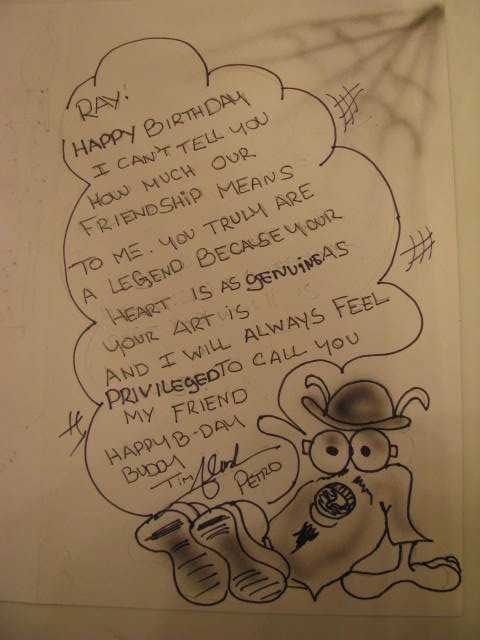 RAY!
HAPPY BIRTHDAY
I CAN'T TELL YOU
HOW MUCH OUR
FRIENDSHIP MEANS
TO ME. YOU TRULY ARE
A LEGEND BECAUSE YOUR
HEART IS AS GENUINE AS
YOUR ART IS
AND I WILL ALWAYS FEEL
PRIVILEGED TO CALL YOU
MY FRIEND
HAPPY B-DAY
BUDDY
TIM PETRO